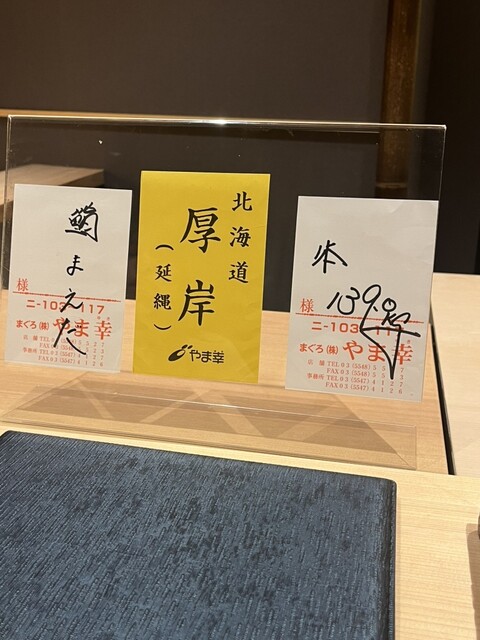 鮨
まえだ
様
ニ-103 117
まぐろ(株)やま幸
店舗 TEL 03(5548)
FAX 03(5548)
事務所 TEL 03(5547)
FAX 03(5547)
北海道
厚岸
(延縄)
やま幸
本
139.0kg
様
ニ-103
まぐろ(株)やま幸
店舗 TEL 03(5548)
FAX 03(5548)
事務所 TEL 03(5547)
FAX 03(5547)